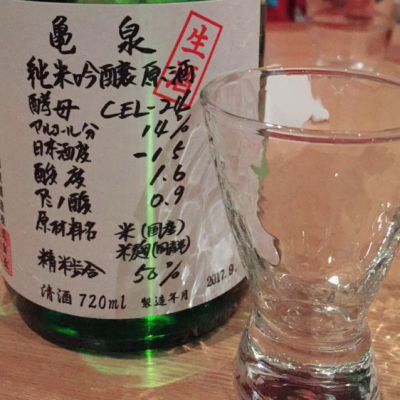 亀泉
生酒
純米吟醸原酒
酵母 CEL-24
アルコール分 14%
日本酒度 -15
酸度 1.6
アミノ酸 0.9
原材料名 米(国産)
米麹(国産米)
精米歩合 50%
清酒 720ml 製造年月 2017.9.